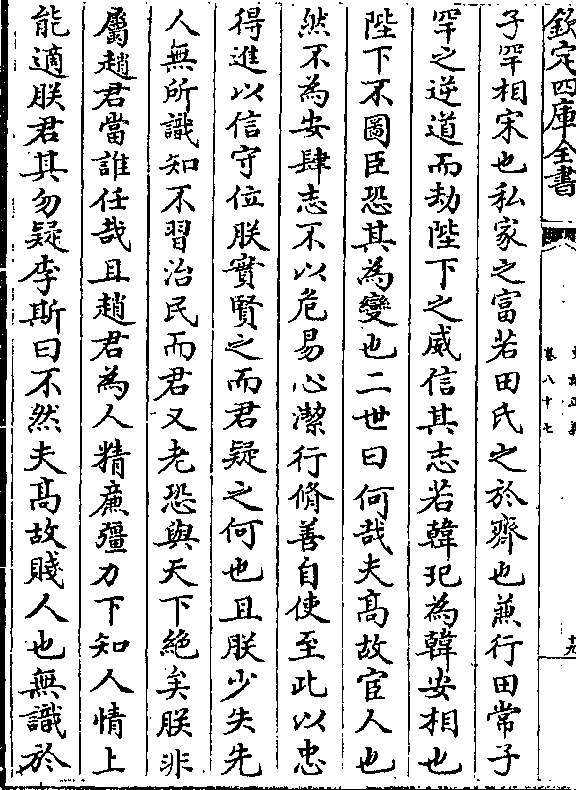 欽定四庫全書
史記正義
卷八十七
子罕相宋也私家之富若田氏之於齊也兼行田常子
罕之逆道而劫陛下之威信其志若韓玘為韓安相也
陛下不圖臣恐其為變也二世曰何哉夫髙故宦人也
然不為安肆志不以危易心潔行脩善自使至此以忠
得進以信守位朕實賢之而君疑之何也且朕少失先
人無所識知不習治民而君又老恐與天下絶矣朕非
屬趙君當誰任哉且趙君為人精廉彊力下知人情上
能適朕君其勿疑李斯曰不然夫髙故賤人也無識於